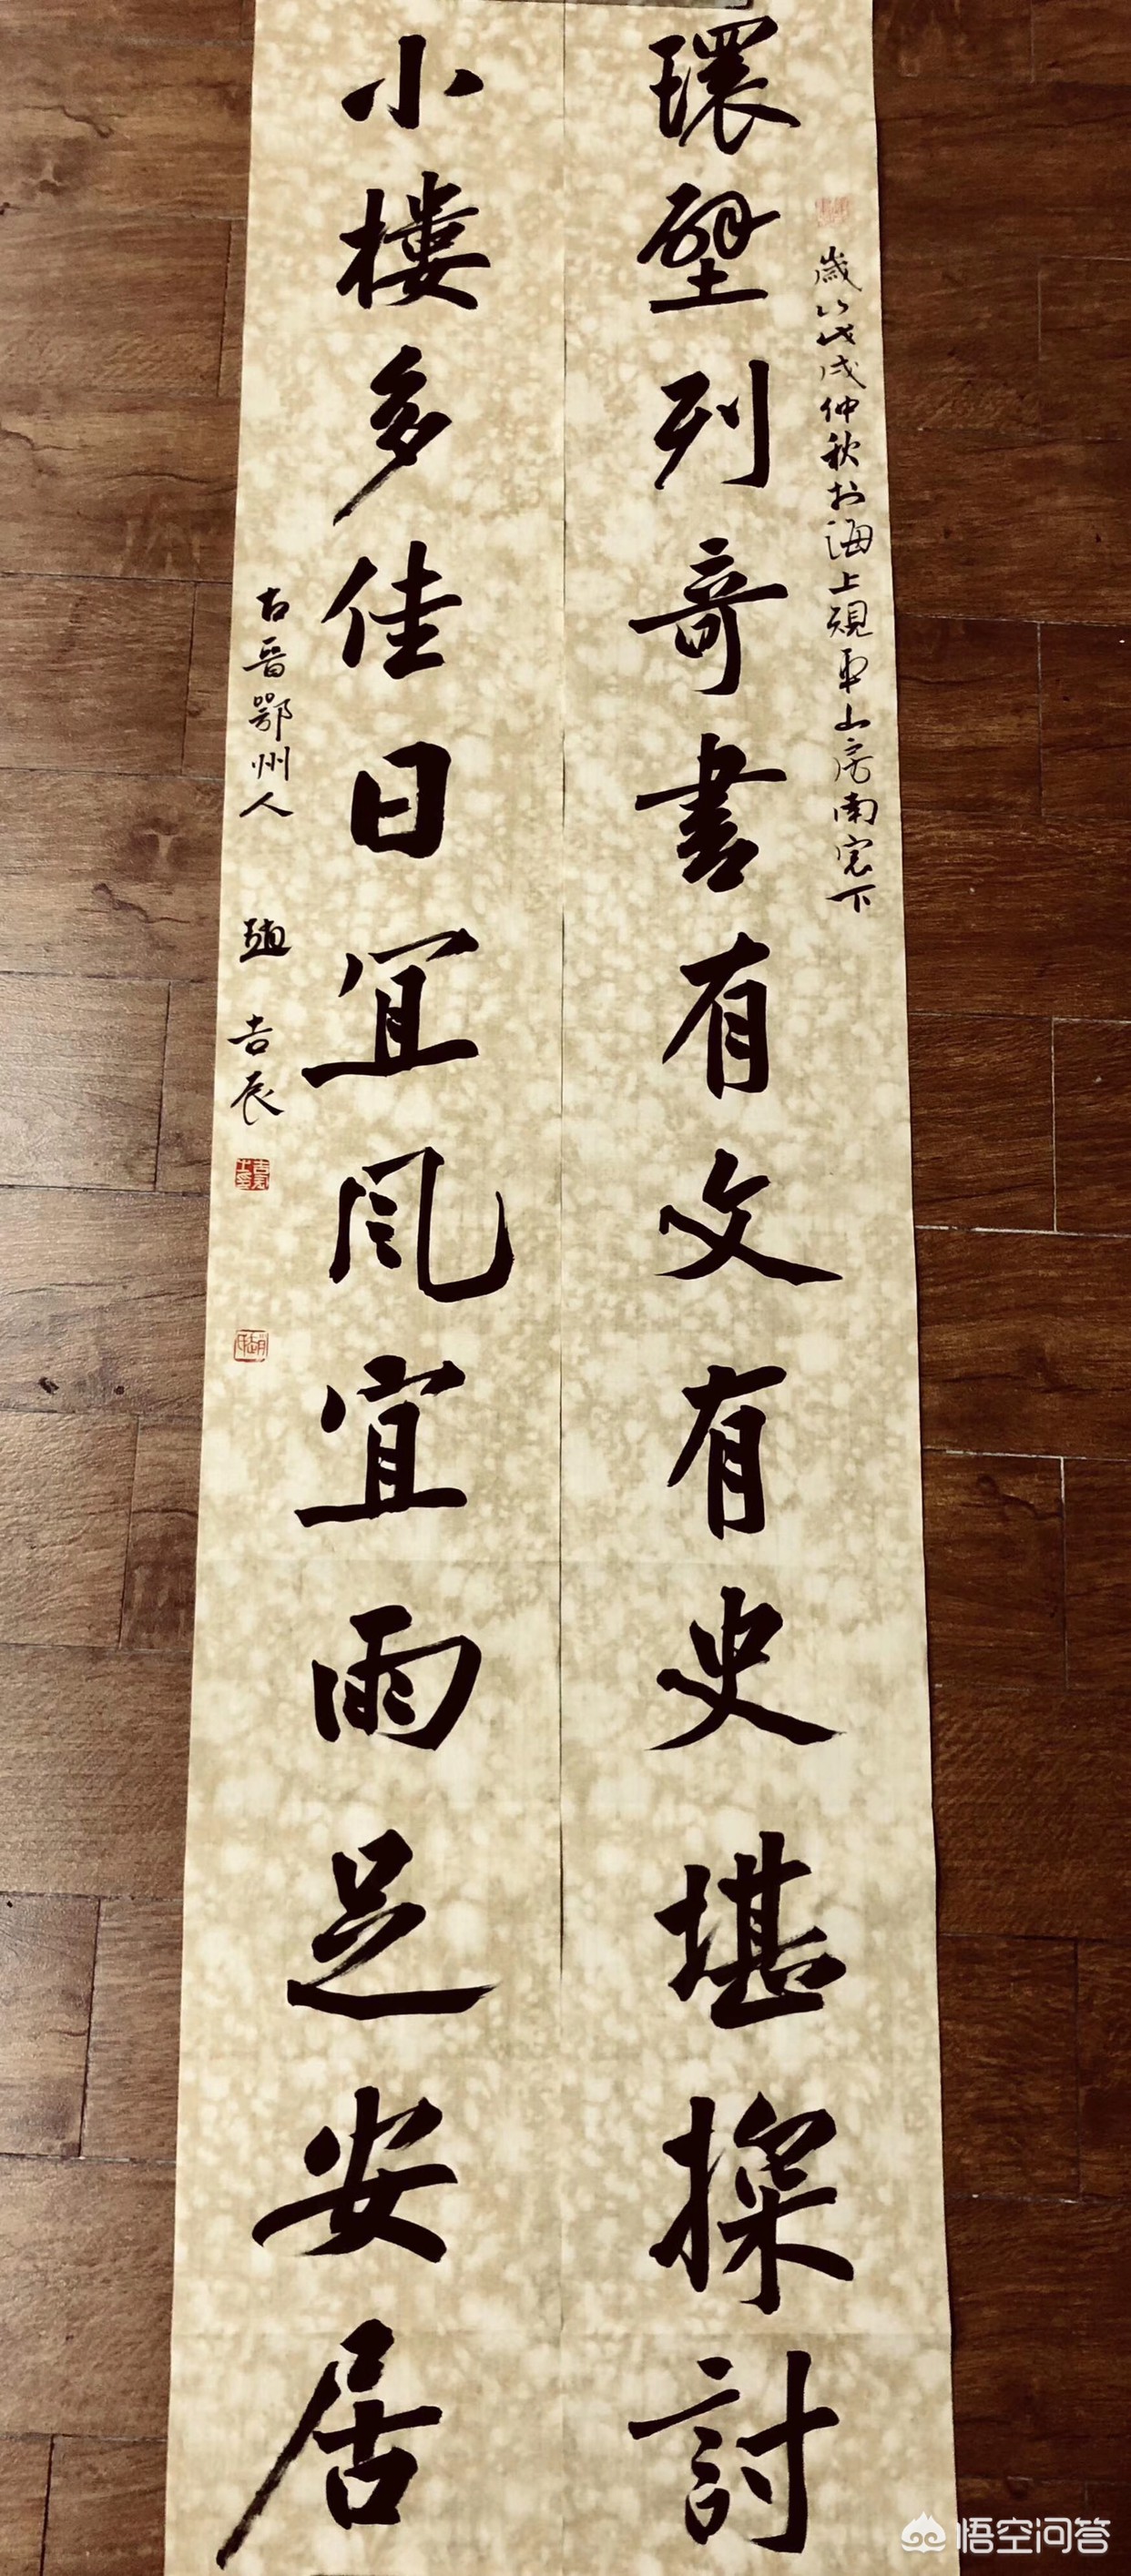 環壁列奇書有文有史堪探討
歲次戊戌仲秋於海上硯耕山房南窓下
小樓多佳日宜風宜雨足安居
古晉鄂州人 趙吉辰
悟空问答